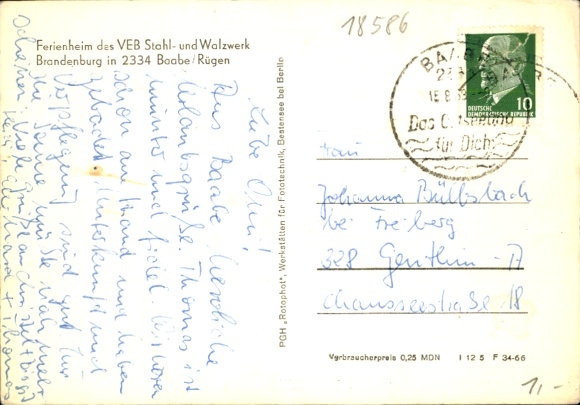 18586
Ferienheim des VEB Stahl- und Walzwerk
Brandenburg in 2334 Baabe/Rügen
Liebe Omi!
Aus Baabe herzliche
Urlaubsgrüße. Thomas ist
munter und fidel. Wir waren
schon am Strand und haben
gebadet. Unterkunft und
Verpflegung sind gut. Nur
die Sonne müßte mehr
scheinen. Viele Grüße an
+ Thomas
PGH „Rotophot", Werkstätten für Fototechnik, Bestensee bei Berlin
DEUTSCHE
DEMOKRATISCHE REPUBLIK
10
BAABE
15.8.
Das Ostseebad
für Dich
Frau
Johanna Bülbsbach
bei Freiberg
328 Genthin - A
Chausseestraße 18
Verbraucherpreis 0,25 MDN I 12 5 F 34-66
1,-